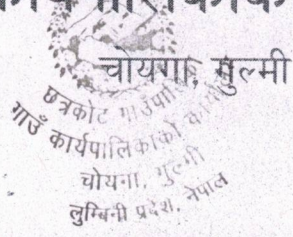 चोयगा, गुल्मी
छत्रकोट गाउँपालिका
गाउँ कार्यपालिकाको
चोयगा, गुल्मी
लुम्बिनी प्रदेश, नेपाल